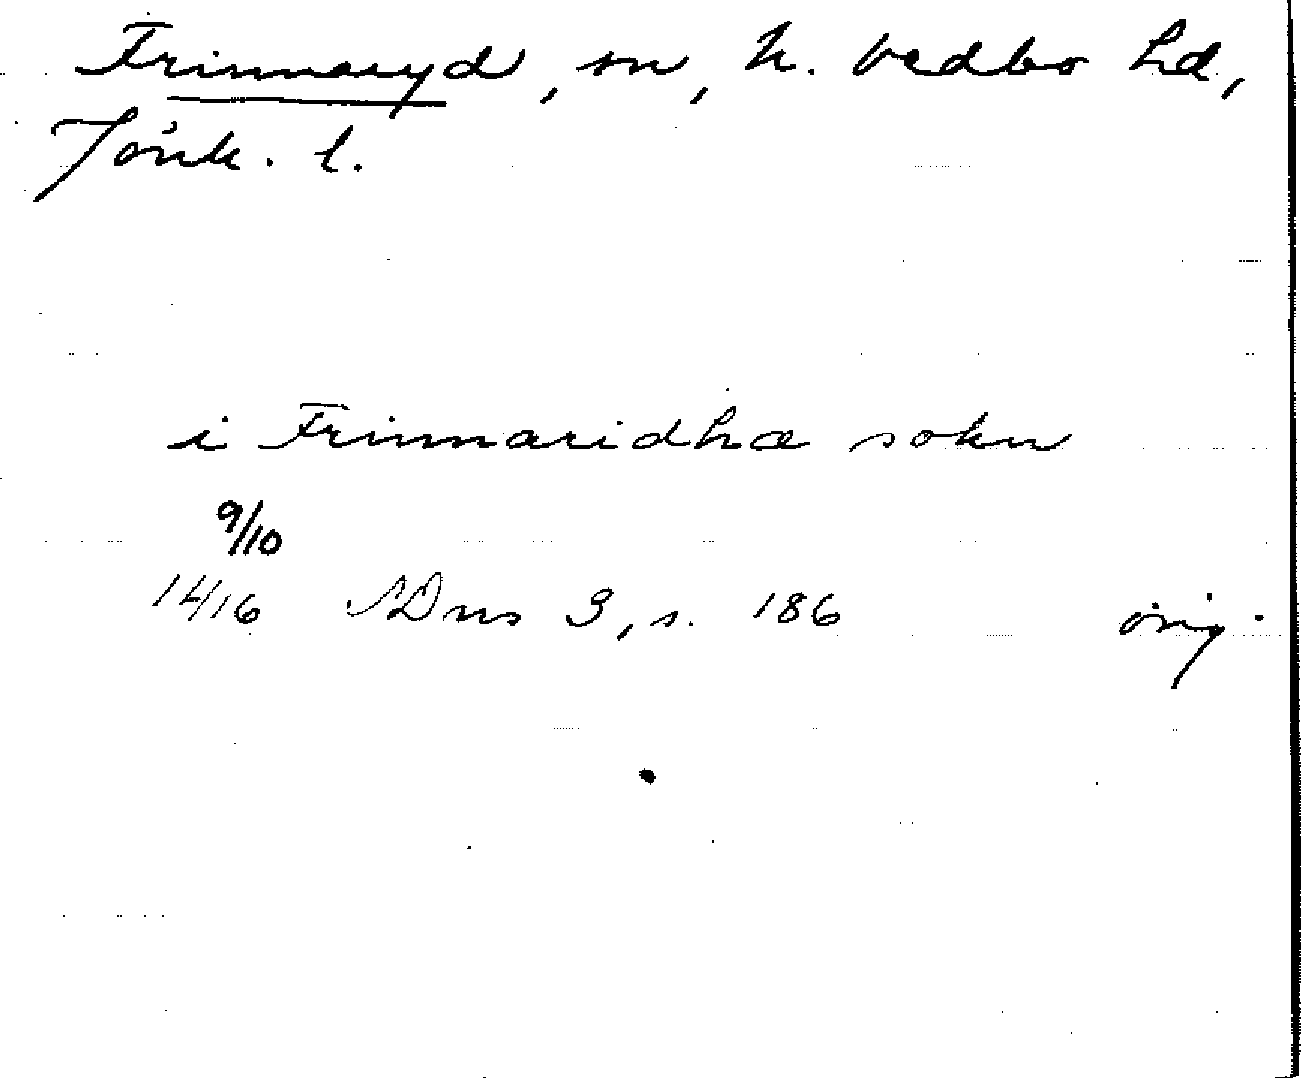 Frinnaryd, sn, N. Vedbo hd,
Jönk. l.
i Frinnaridhæ sokn
9/10
1416 SDns 3, s. 186 orig.